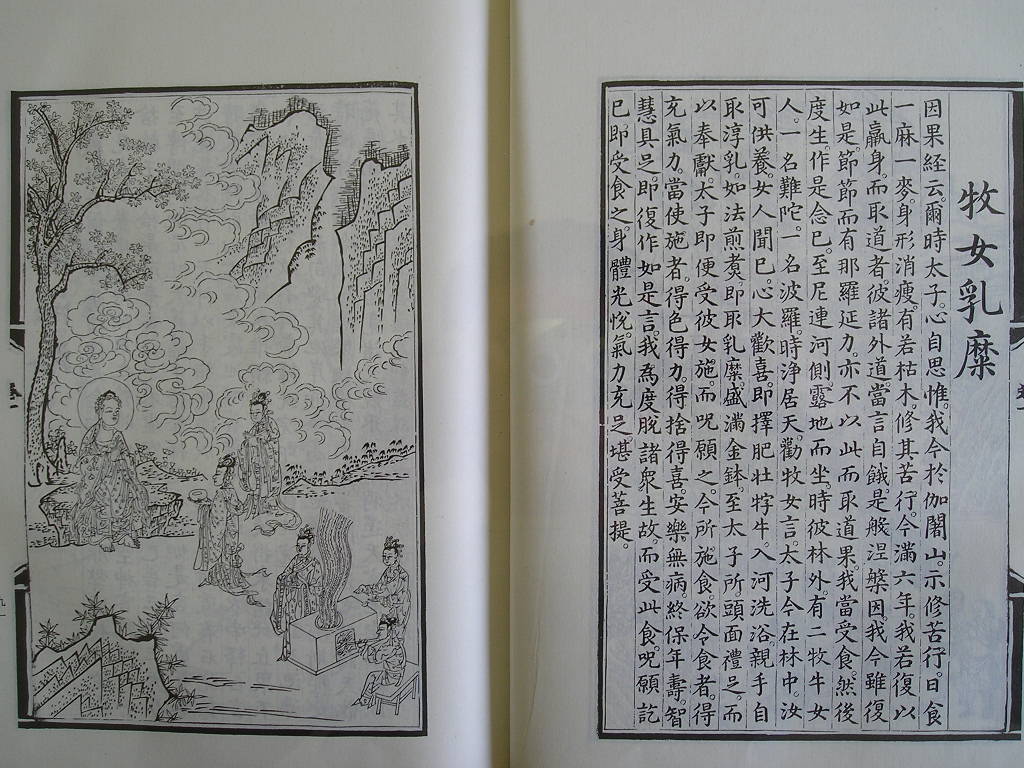 牧女乳糜
因果經云。爾時太子。心自思惟。我今於伽闍山。示修苦行。日食
一麻一麥。身形消瘦。有若枯木。修其苦行。今滿六年。我若復以
此羸身。而取道者。彼諸外道。當言自餓。是般涅槃因。我今雖復
如是。節節而有那羅延力。亦不以此而取道果。我當受食。然後
度生。作是念已。至尼連河側。露地而坐。時彼林外。有二牧牛女
人。一名難陀。一名波羅。時淨居天。勸牧女言。太子今在林中。汝
可供養。女人聞已。心大歡喜。即擇肥壯牸牛。入河洗浴。親手自
取淳乳。如法煎煮。即取乳糜。盛滿金鉢。至太子所。頭面禮足。而
以奉獻。太子即便受彼女施。而呪願之。今所施食。欲令食者。得
充氣力。當使施者。得色得力。得捨得喜。安樂無病。終保年壽。智
慧具足。即復作如是言。我為度脫諸衆生故。而受此食。呪願訖
已。即受食之。身體光悅。氣力充足。堪受菩提。
九